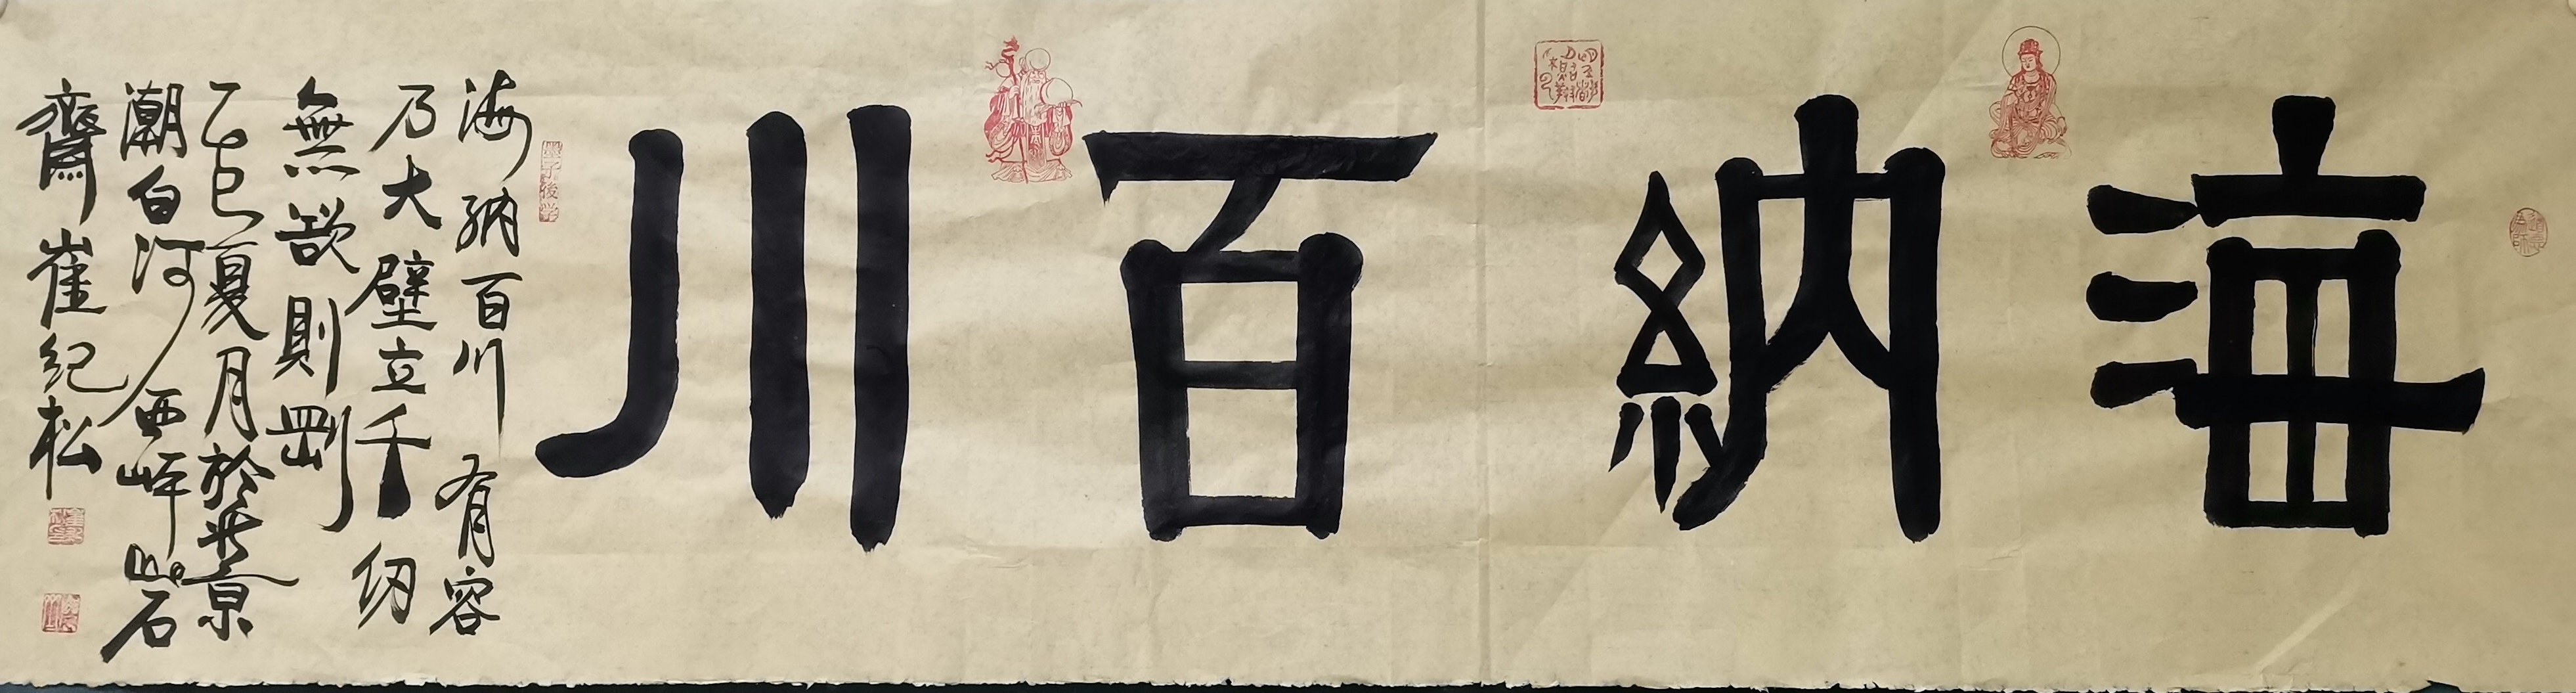 海納百川
海納百川有容
乃大壁立千仞
無欲則剛
乙巳夏月於北京
潮白河西岸岩石
齋崔纪松